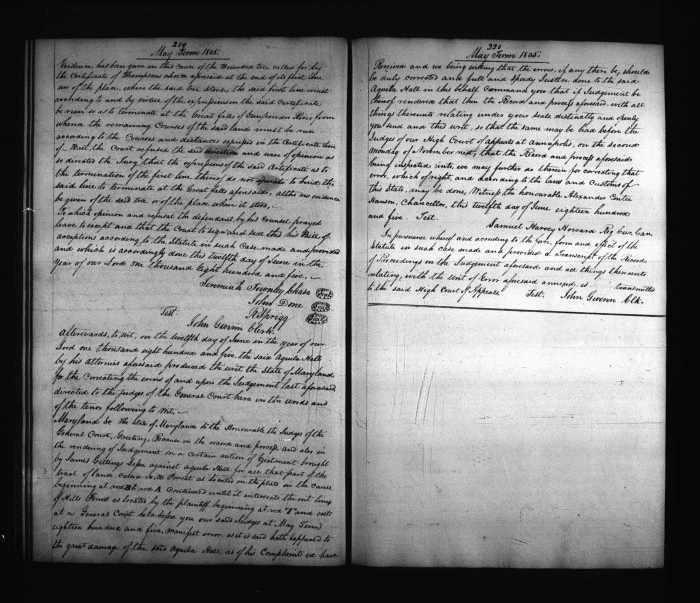 219
May Term 1805.
Evidence, has been given in this cause of the Bounded tree called for by
the Certificate of Thompsons choice aforesaid at the end of its first line
nor of the place, where the said tree stood, the said first line must
according to and by virtue of the expressions in the said Certificate,
be run so as to terminate at the Great falls of Gunpowder River, from
whence the remaining Courses of the said land must be run
according to the Courses and distances expressed in the Certificate there
of. But, the Court refused the said direction and were of opinion and
so directed the Jury, that the expressions of the said Certificate as to
the termination of the first line thereof do not operate to bind the
said line to terminate at the Great falls aforesaid, altho no evidence
be given of the said tree or of the place where it stood.
To which opinion and refusal the defendant by his Counsel prayed
leave to except and that the Court to sign and seal this his Bill of ex-
ceptions according to the Statute in such Case made and provided
and which is accordingly done this twelfth day of June in the
year of our Lord one thousand eight hundred and five.
Jeremiah Townley Chase
John Done
R Sprigg
Test
John Gwinn Clerk.
Afterwards, to wit, on the twelfth day of June in the year of our
Lord one thousand eight hundred and five, the said Aquila Hall
by his Attornies aforesaid produced the writ the State of Maryland
for the Correcting the errors of and upon the Judgement last aforesaid
directed to the Judges of the General Court here in the words and
of the tenor following to wit,
Maryland Sc The State of Maryland to the Honourable the Judges of the
General Court, Greeting, Because in the record and process and also in
the rendering of Judgement on a certain action of Ejectment brought
by James Gittings Lessee against Aquila Hall for all that part of the
tract of land called Hills Forest as located on the plots in the cause
beginning at red B to red A Continued until it intersects the out lines
of Hills Forest as located by the plaintiff beginning at red I and costs
at a General Court held before you our said Judges at May Term
eighteen hundred and five, manifest error as it is said hath happened to
the great damage of the said Aquila Hall as of his Complaint we have
220
May Term 1805.
Received and we being willing that the error, if any there be, should
be duly corrected and full and speedy Justice done to the said
Aquila Hall in this behalf Command you that if Judgement be
thereof rendered that then the Record and process aforesaid with all
things thereunto relating under your seals distinctly and openly
you send and this writ, so that the same may be had before the
Judges of our High Court of appeals at annapolis, on the second
monday of November next, that the Record and process aforesaid
being inspected into, we may further do therein for correcting that
error, which of right and according to the laws and Customs of
this State may be done, Witness the honourable Alexander Contee
Hanson, Chancellor, this twelfth day of June eighteen hundred
and five. Test.
Samuel Harvey Howard Reg Cur Can
In pursuance whereof and according to the form and effect of the
Statute in such case made and provided a Transcript of the Record
of Proceedings on the Judgement aforesaid and all things thereunto
relating, with the Writ of Error aforesaid annexed, is transmitted
to the said High Court of Appeals. Test. John Gwinn Clk.